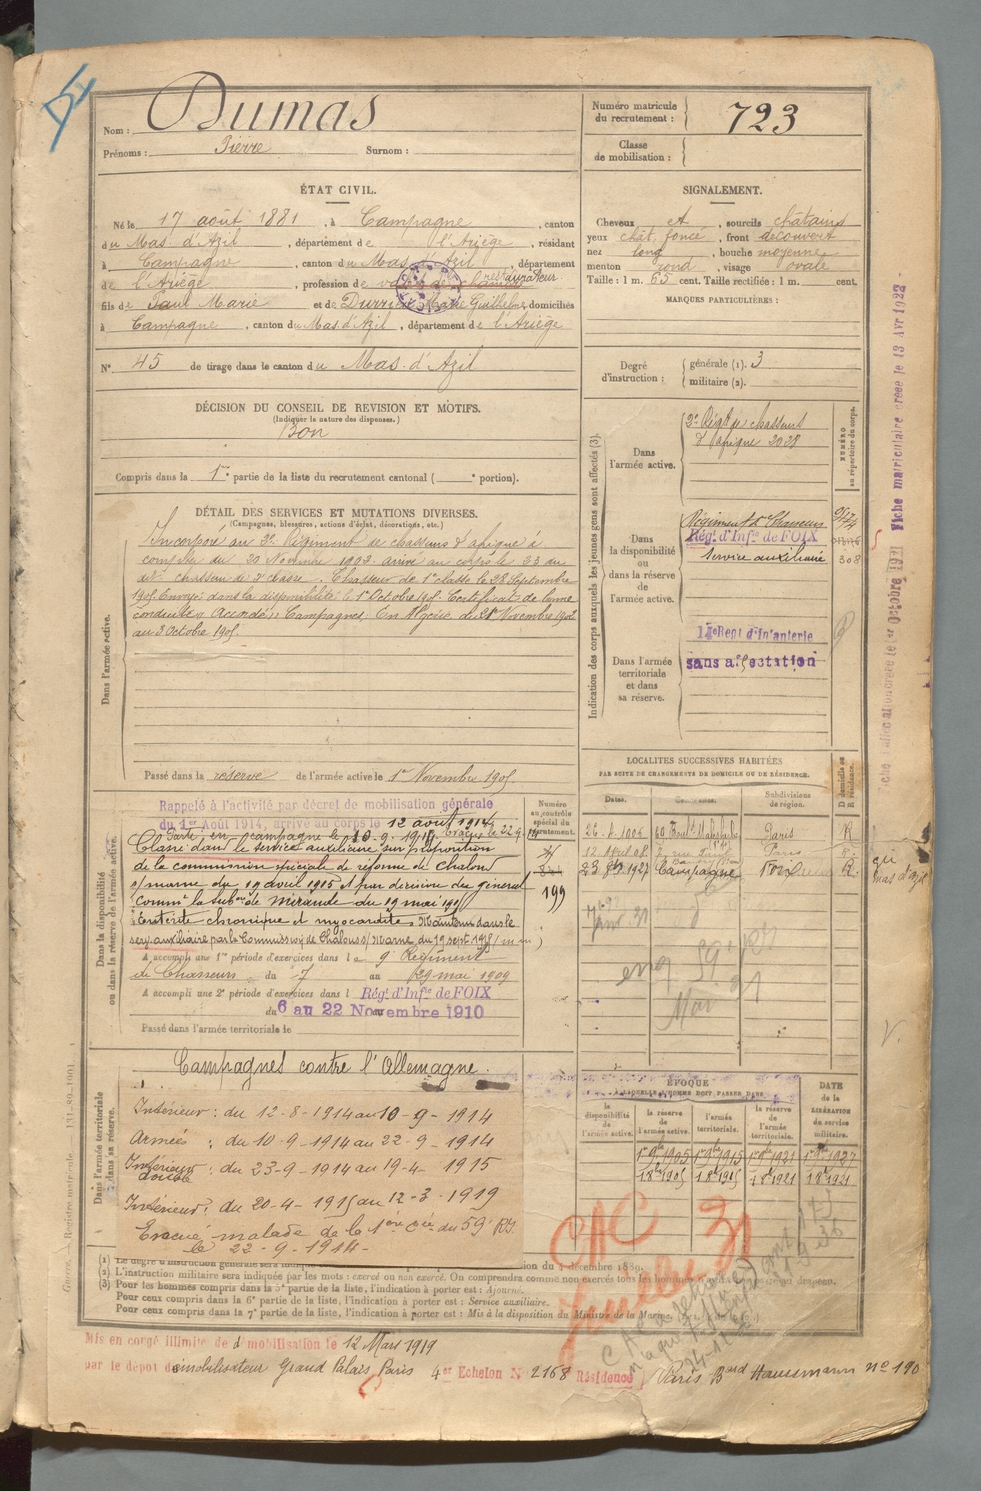 Nom : Dumas
Prénoms : Pierre Surnom :
Numéro matricule du recrutement : 723
Classe de mobilisation :
ÉTAT CIVIL.
Né le 17 août 1881, à Campagne, canton
du Mas d'Azil, département de l'Ariège, résidant
à Campagne, canton du Mas d'Azil département
de l'Ariège, profession de restaurateur
fils de Jean Marie et de Marie Guilhelme domiciliés
à Campagne, canton du Mas d'Azil, département de l'Ariège
N° 45 de tirage dans le canton du Mas-d'Azil
SIGNALEMENT.
Cheveux et, sourcils châtains
yeux chât. foncé, front découvert
nez long, bouche moyenne
menton rond, visage ovale
Taille : 1 m. 65 cent. Taille rectifiée : 1 m. cent.
MARQUES PARTICULIÈRES :
Degré d'instruction :
générale (1). 3
militaire (2).
DÉCISION DU CONSEIL DE REVISION ET MOTIFS.
(Indiquer la nature des dispenses.)
Bon
Compris dans la 1re partie de la liste du recrutement cantonal ( e portion).
DÉTAIL DES SERVICES ET MUTATIONS DIVERSES.
(Campagnes, blessures, actions d'éclat, décorations, etc.)
Dans l'armée active.
Incorporé au 2e Régiment de chasseurs d'afrique à
compter du 20 Novembre 1902. arrivé au corps le 23 du
dit chasseur de 2e classe. Chasseur de 1re classe le 28 Septembre
1905. Envoyé dans la disponibilité le 1er Octobre 1905. Certificat de bonne
conduite "Accordé". Campagnes: En Algérie du 21 Novembre 1902
au 3 Octobre 1905.
Passé dans la réserve de l'armée active le 1er Novembre 1905
Indication des corps auxquels les jeunes gens sont affectés (3).
NUMÉRO au répertoire du corps.
Dans l'armée active.
2e Régt de chasseurs
d'afrique 2028
Dans la disponibilité ou dans la réserve de l'armée active.
Régiment de Chasseurs
Régt d'Infie de FOIX
Service auxiliaire 308
Dans l'armée territoriale et dans sa réserve.
Regt d'Infanterie
sans affectation
LOCALITÉS SUCCESSIVES HABITÉES
PAR SUITE DE CHANGEMENTS DE DOMICILE OU DE RÉSIDENCE.
Dates. Communes. Subdivisions de région. D domicile ou R résidence.
Paris R
12 08 Paris
23 1927 Campagne Foix R
Janv. 31
Mar. 31
Dans la disponibilité ou dans la réserve de l'armée active.
Numéro au contrôle spécial du recrutement.
199
Rappelé à l'activité par décret de mobilisation générale
du 1er Août 1914, arrivé au corps le 12 août 1914
Parti en campagne le 10-9-1914, évacué le 22-9-14
Classé dans le service auxiliaire sur proposition
de la commission spéciale de réforme de Chalons
s/marne du 19 avril 1915 et par décision du général
Commt la Subon de Mirande du 19 mai 1915
"Entérite chronique et myocardite". Maintenu dans le
serv. auxiliaire par la Commission de Châlons s/Marne du 19 sept 1918 (m m)
A accompli une 1re période d'exercices dans le 9e Régiment
de Chasseurs du 7 au 29 mai 1909
A accompli une 2e période d'exercices dans l Régt d'Infie de FOIX
du 6 au 22 Novembre 1910
Passé dans l'armée territoriale le
Dans l'armée territoriale et dans sa réserve.
Campagnes contre l'Allemagne.
Intérieur : du 12-8-1914 au 10-9-1914
Armées : du 10-9-1914 au 22-9-1914
Intérieur double : du 23-9-1914 au 19-4-1915
Intérieur : du 20-4-1915 au 12-3-1919
Évacué malade de la 1ère Cie du 59e RI
le 22-9-1914-
ÉPOQUE
À LAQUELLE L'HOMME DOIT PASSER DANS
DATE DE LA LIBÉRATION du service militaire.
la disponibilité de l'armée active. la réserve de l'armée active. l'armée territoriale. la réserve de l'armée territoriale.
1er 9bre 1905 1er 9bre 1915 1er 9bre 1921 1er 9bre 1927
1 8bre 1905 1 8bre 1915 1 8bre 1921 1 8 1921
(1) Le degré d'instruction générale sera indiqué
(2) L'instruction militaire sera indiquée par les mots : exercé ou non exercé. On comprendra comme non exercés tous les hommes
(3) Pour les hommes compris dans la 5e partie de la liste, l'indication à porter est : Ajourné.
Pour ceux compris dans la 6e partie de la liste, l'indication à porter est : Service auxiliaire.
Pour ceux compris dans la 7e partie de la liste, l'indication à porter est : Mis à la disposition du Ministre de la Marine.
CAC
Juillet 31
Mis en congé illimité de démobilisation le 12 Mars 1919
par le dépôt démobilisateur Grand Palais Paris 4er Echelon N° 2168 Résidence Paris Bard Haussmann n° 190
Fiche matriculaire créée le 13 Avr 1922
Guerre. — Registre matricule.